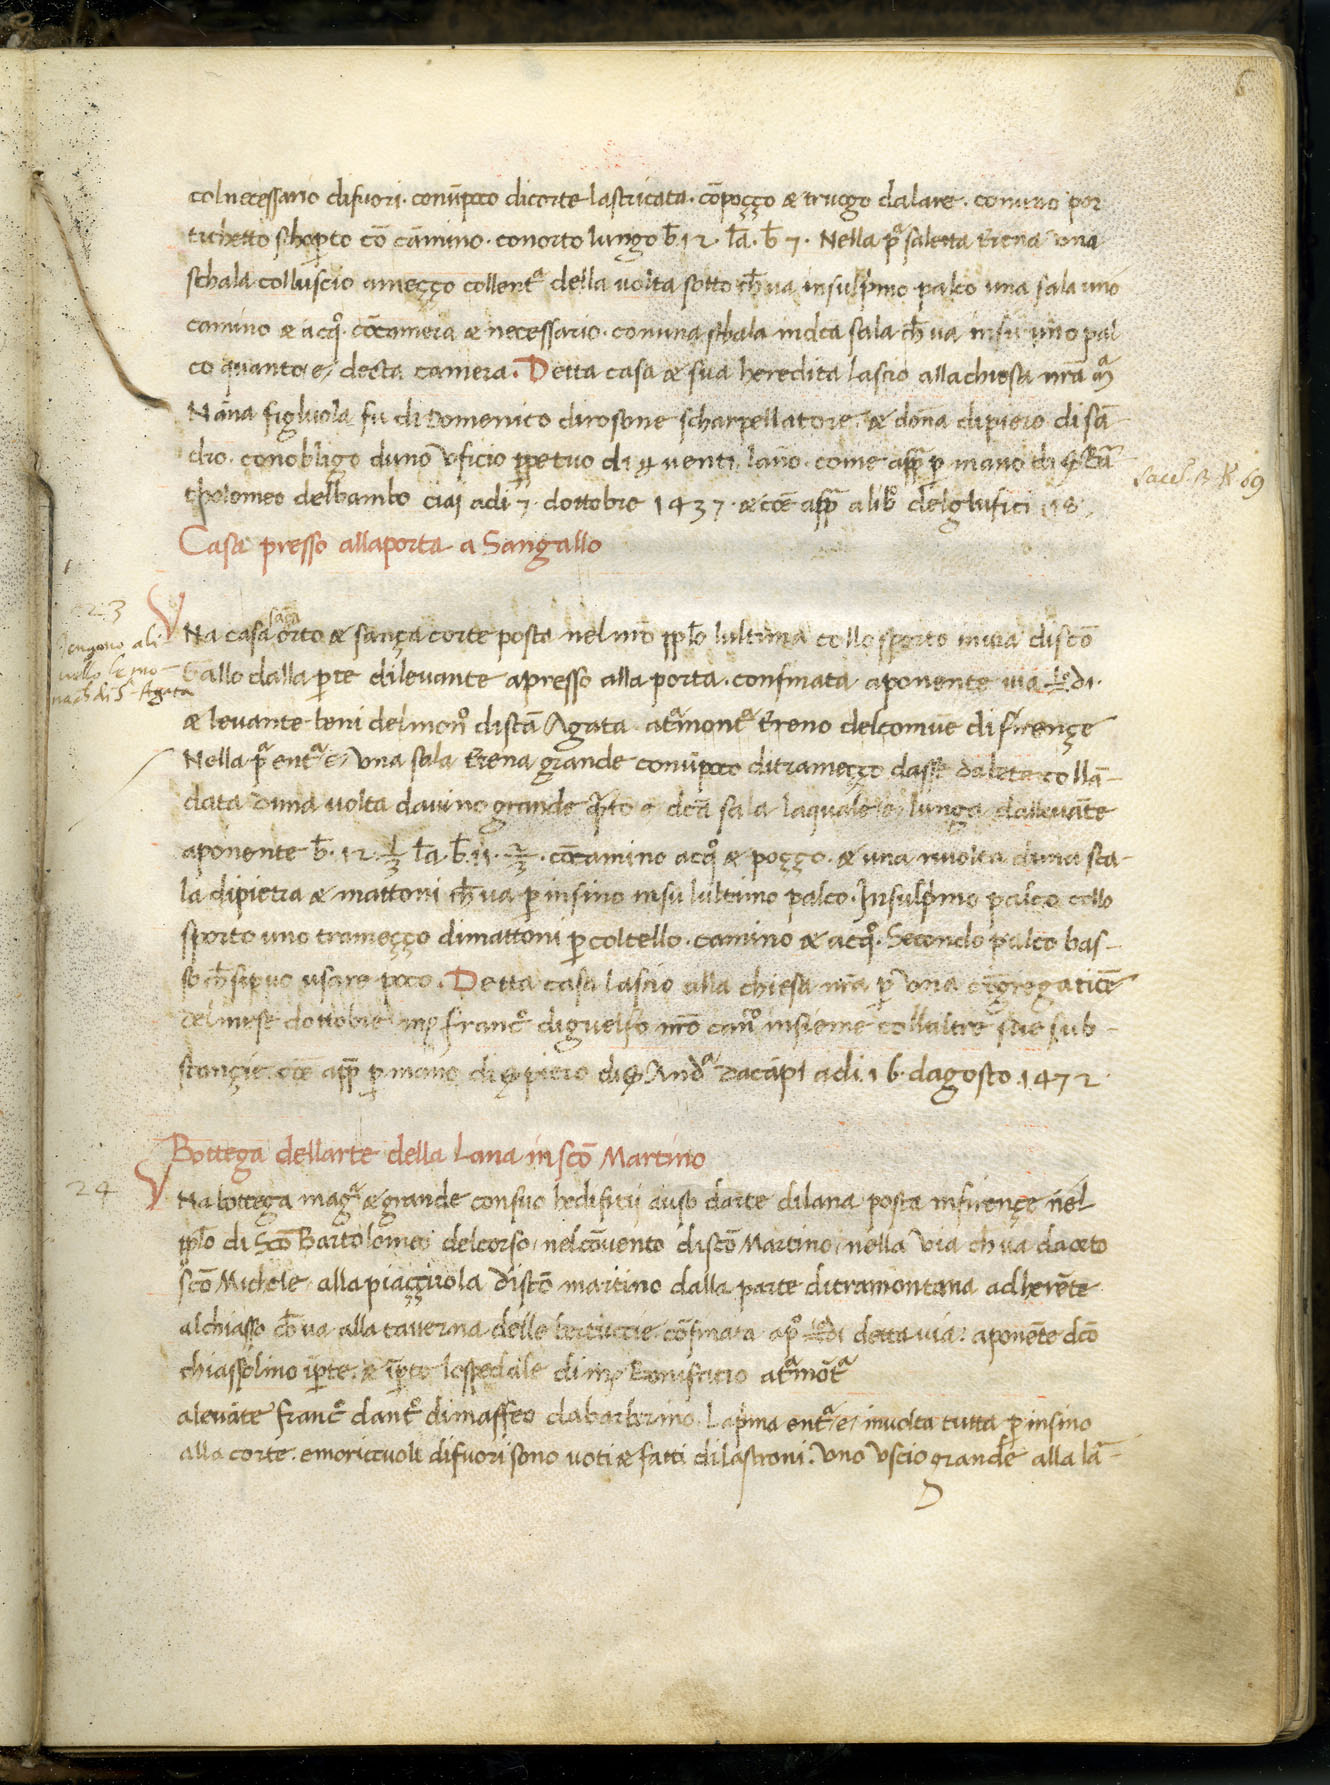 6
colnecessario difuori · conūpoco dicorte lastricata · cōpoçço & truogo dalare · conuno por
tichetto schoperto cō cāmino · conorto lungo b̄ 12 · l̄a · b̄ 7 · Nella pª saletta terena una
schala colluscio ameçço collentª della volta sotto ch̄ va insulpimo palco una sala uno
camino & acqº · cōcamera & necessario · conuna schala indc̄a sala ch̄ va insu uno pal
co quanto e / decta camera · Detta casa & sua heredita lascio allachiesa nr̄a mª
Nāna figluola fu di Domenico dirosone scharpellatore / & dōna dipiero disā
dro · conobligo duno uficio ppetuo di venti lanno · come app̄ p mano di Bar
tholomeo delbambo ciai adi 7 dottobre 1437 · & cōe app̄ a libº delgluficj 18
Sacᵗ. B. K 69
Casa presso allaporta a Sangallo
23
Tengono ali
vello le mo
nach di S. Agata
VNa casa sāça orto & sança corte posta nel nrō pplo lultima collo sporto inuia discō
Gallo dalla pte dilevante apresso alla porta · confinata aponente via di ·
& levante beni delmonº distā Agata · atªmontª tereno delcomūe difirençe
Nella pª entª e / una sala terena grande conūpoco ditrameçço dasse dalata collā-
data duna volta davino grande qto e dc̄a sala laquale e / lunga dallevāte
aponente b̄ · 12 · 1/3 l̄a · b̄ 11 · 2/3 · cōcamino acqº & poçço · & una rivolta duna sca-
la dipietra & mattoni ch̄ va p insino insu lultimo palco · Insulpimo palco collo
sporto uno trameçço dimattoni p coltello · camino & acqº · Secondo palco bas-
so ch̄ sipuo usare poco · Detta casa lascio alla chiesa nr̄a p una cōgregaticē
delmese dottobre mֽ francº diguelfo nrō canºo insieme collaltre sue sub-
stançie · cōe app̄ p mano di piero di Andª dacāpi adi 16 dagosto 1472
Bottega dellarte della Lana in scō Martino
24
VNa bottega magª & grande consuo hedifitii auso darte dilana posta infirençe nel
pplo di Scō Bartolomeo delcorso / nelcōvento discō Martino / nella via ch va daorto
scō Michele / alla piaççuola discō martino dalla parte ditramontana adherēte
alchiasso ch̄ va alla taverna delle bertuccie · cōfinata apº di detta via : aponēte dcō
chiassolino īpte / & īpte lospedale di mֽ Bonifatio atªmōtª
alevāte francº dantº dimaffeo dabarberino · Lapima entª e / involta tutta p insino
alla corte · emoricciuoli difuori sono voti & fatti dilastroni · Uno uscio grande alla lā-